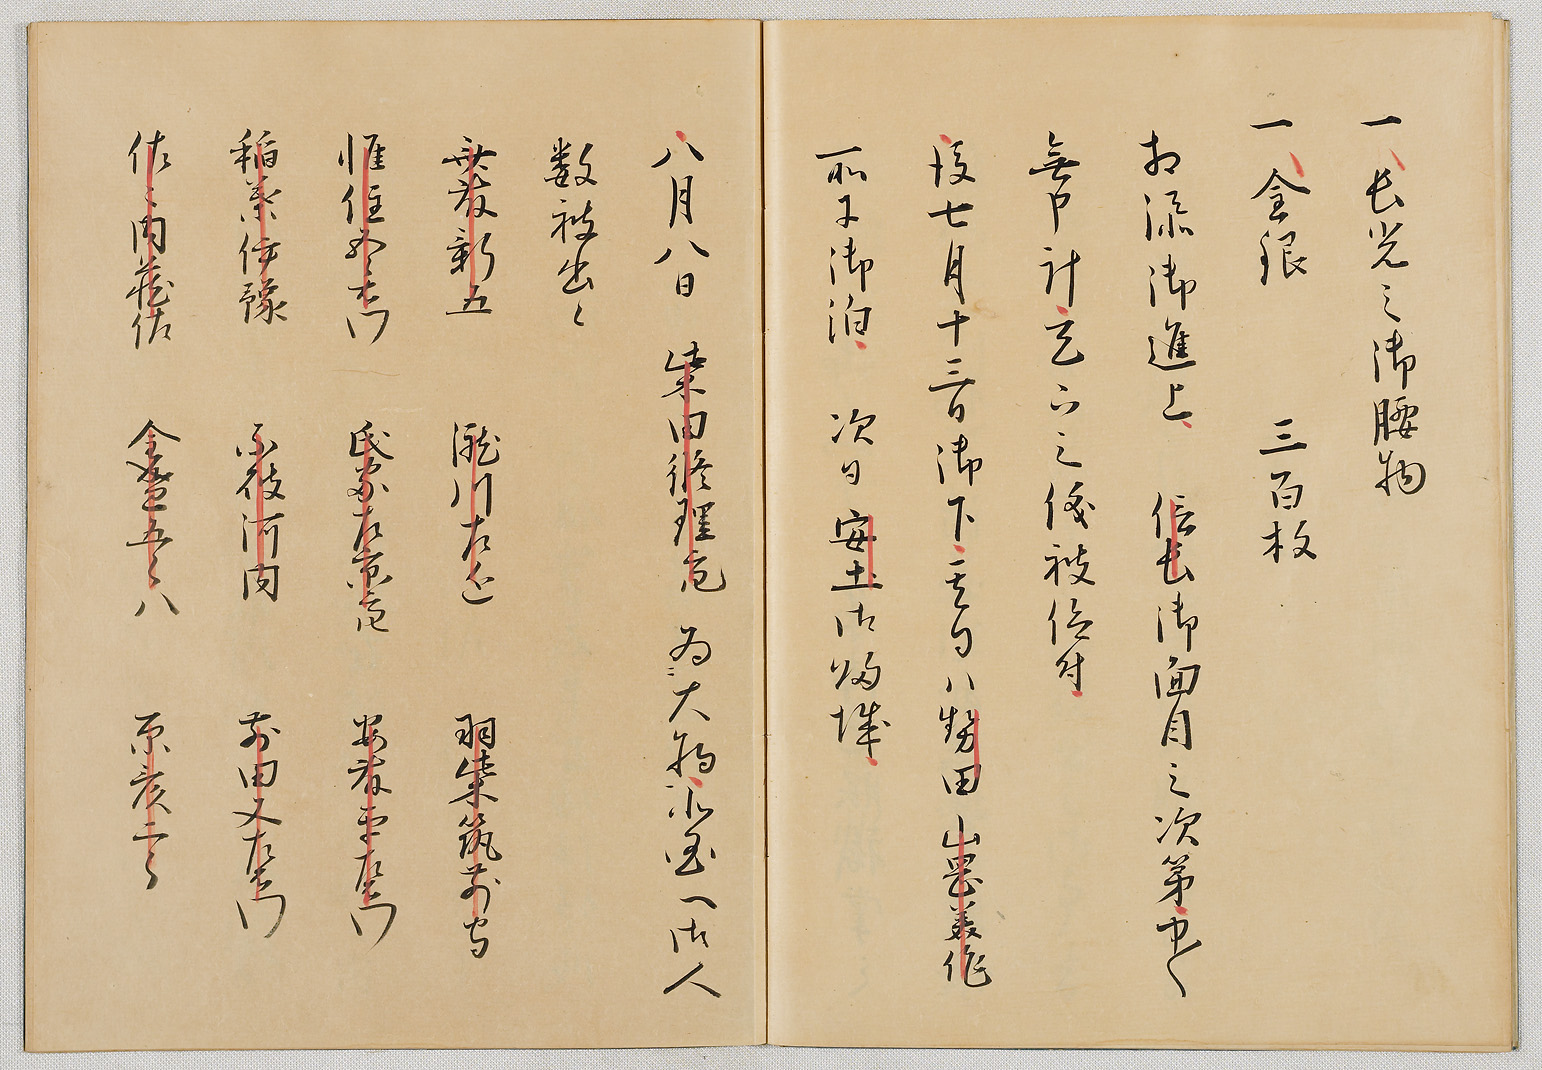 一長光之御腰物
一金銀　三百枚
相添御進上　信長御面目之次第中〱
無申計　之儀被仰付
後七月十三日御下　其日ハ勢田　山岡美作
所ニ御泊　次日安土御帰城
八月八日　柴田修理亮　為大将北国へ御人
数被出候
斎藤新五　瀧川左近　羽柴筑前守
惟住五郎左衛門　氏家左京亮　安藤平左衛門
稲葉伊豫　不破河内　前田又左衛門
佐々内蔵佐　金森五郎八　原彦二郎